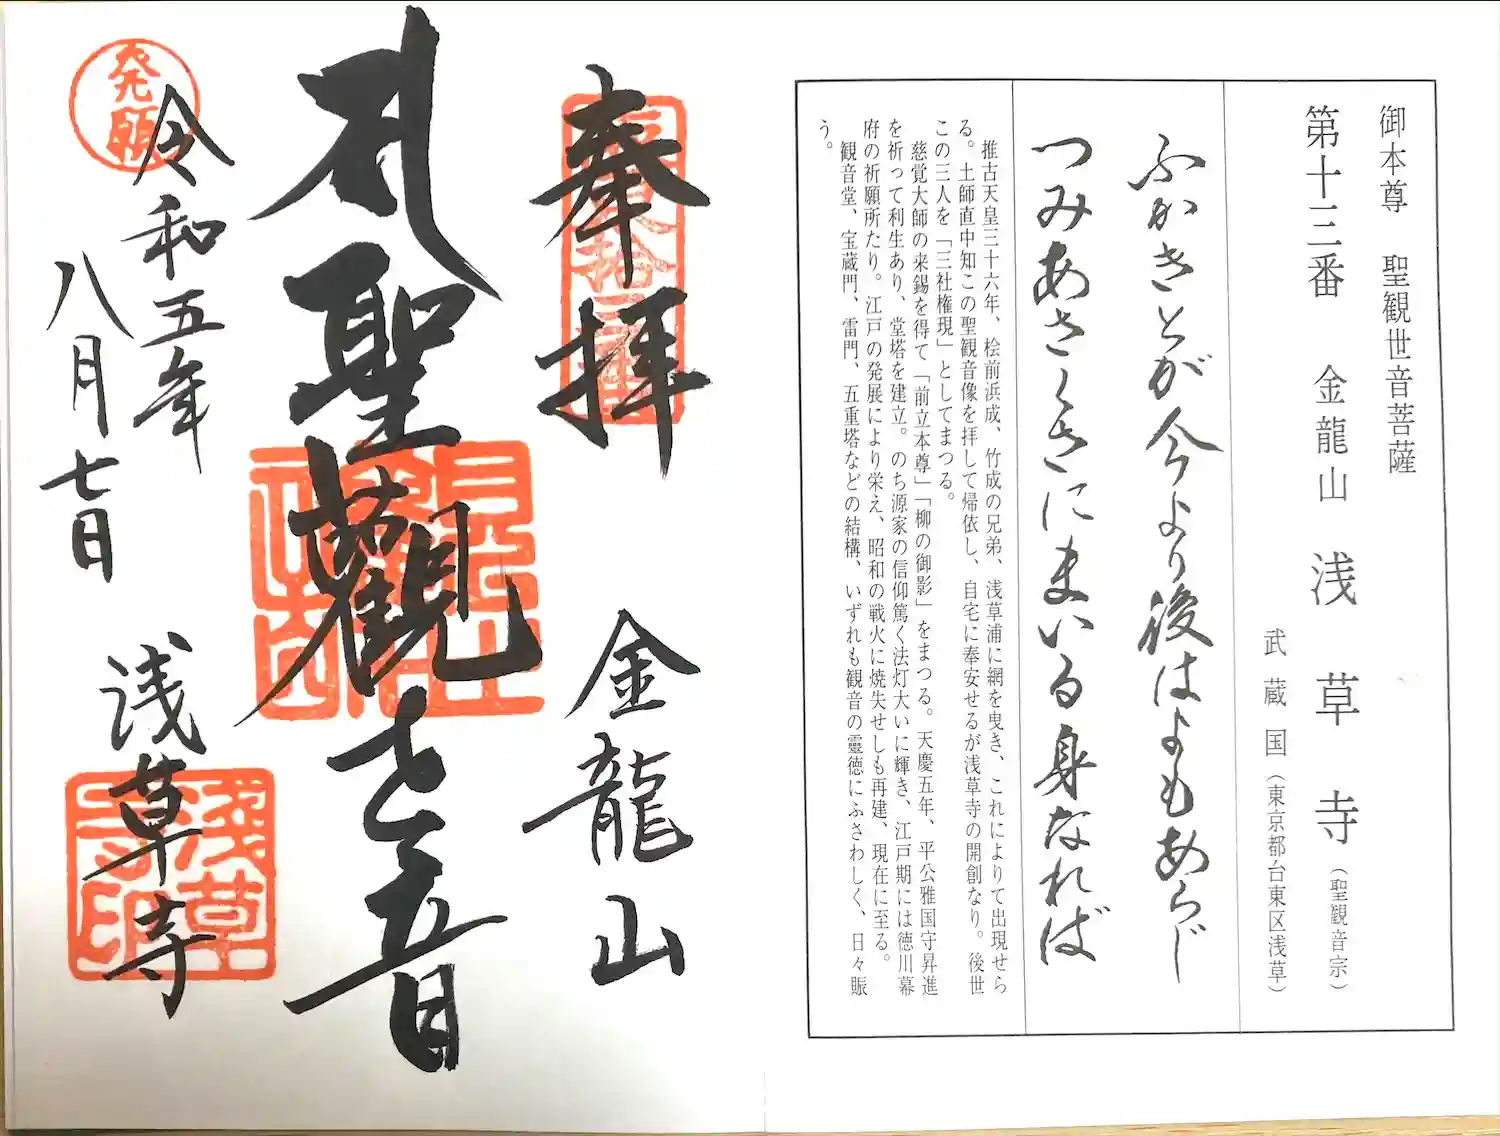 御本尊　聖観世音菩薩
第十三番　金龍山　浅草寺（聖観音宗）
武蔵国（東京都台東区浅草）
ふかきとが今より後はよもあらじ
つみあさくさにまいる身なれば
推古天皇三十六年、桧前浜成、竹成の兄弟、浅草浦に網を曳き、これによりて出現せら
る。土師直中知この聖観音像を拝して帰依し、自宅に奉安せるが浅草寺の開創なり。後世
この三人を「三社権現」としてまつる。
慈覚大師の来錫を得て「前立本尊」「柳の御影」をまつる。天慶五年、平公雅国守昇進
を祈って利生あり、堂塔を建立。のち源家の信仰篤く法灯大いに輝き、江戸期には徳川幕
府の祈願所たり。江戸の発展により栄え、昭和の戦火に焼失せしも再建、現在に至る。
観音堂、宝蔵門、雷門、五重塔などの結構、いずれも観音の霊徳にふさわしく、日々賑
う。
奉拝
金龍山
聖觀世音
発願
令和五年
八月七日
浅草寺
淺草寺印